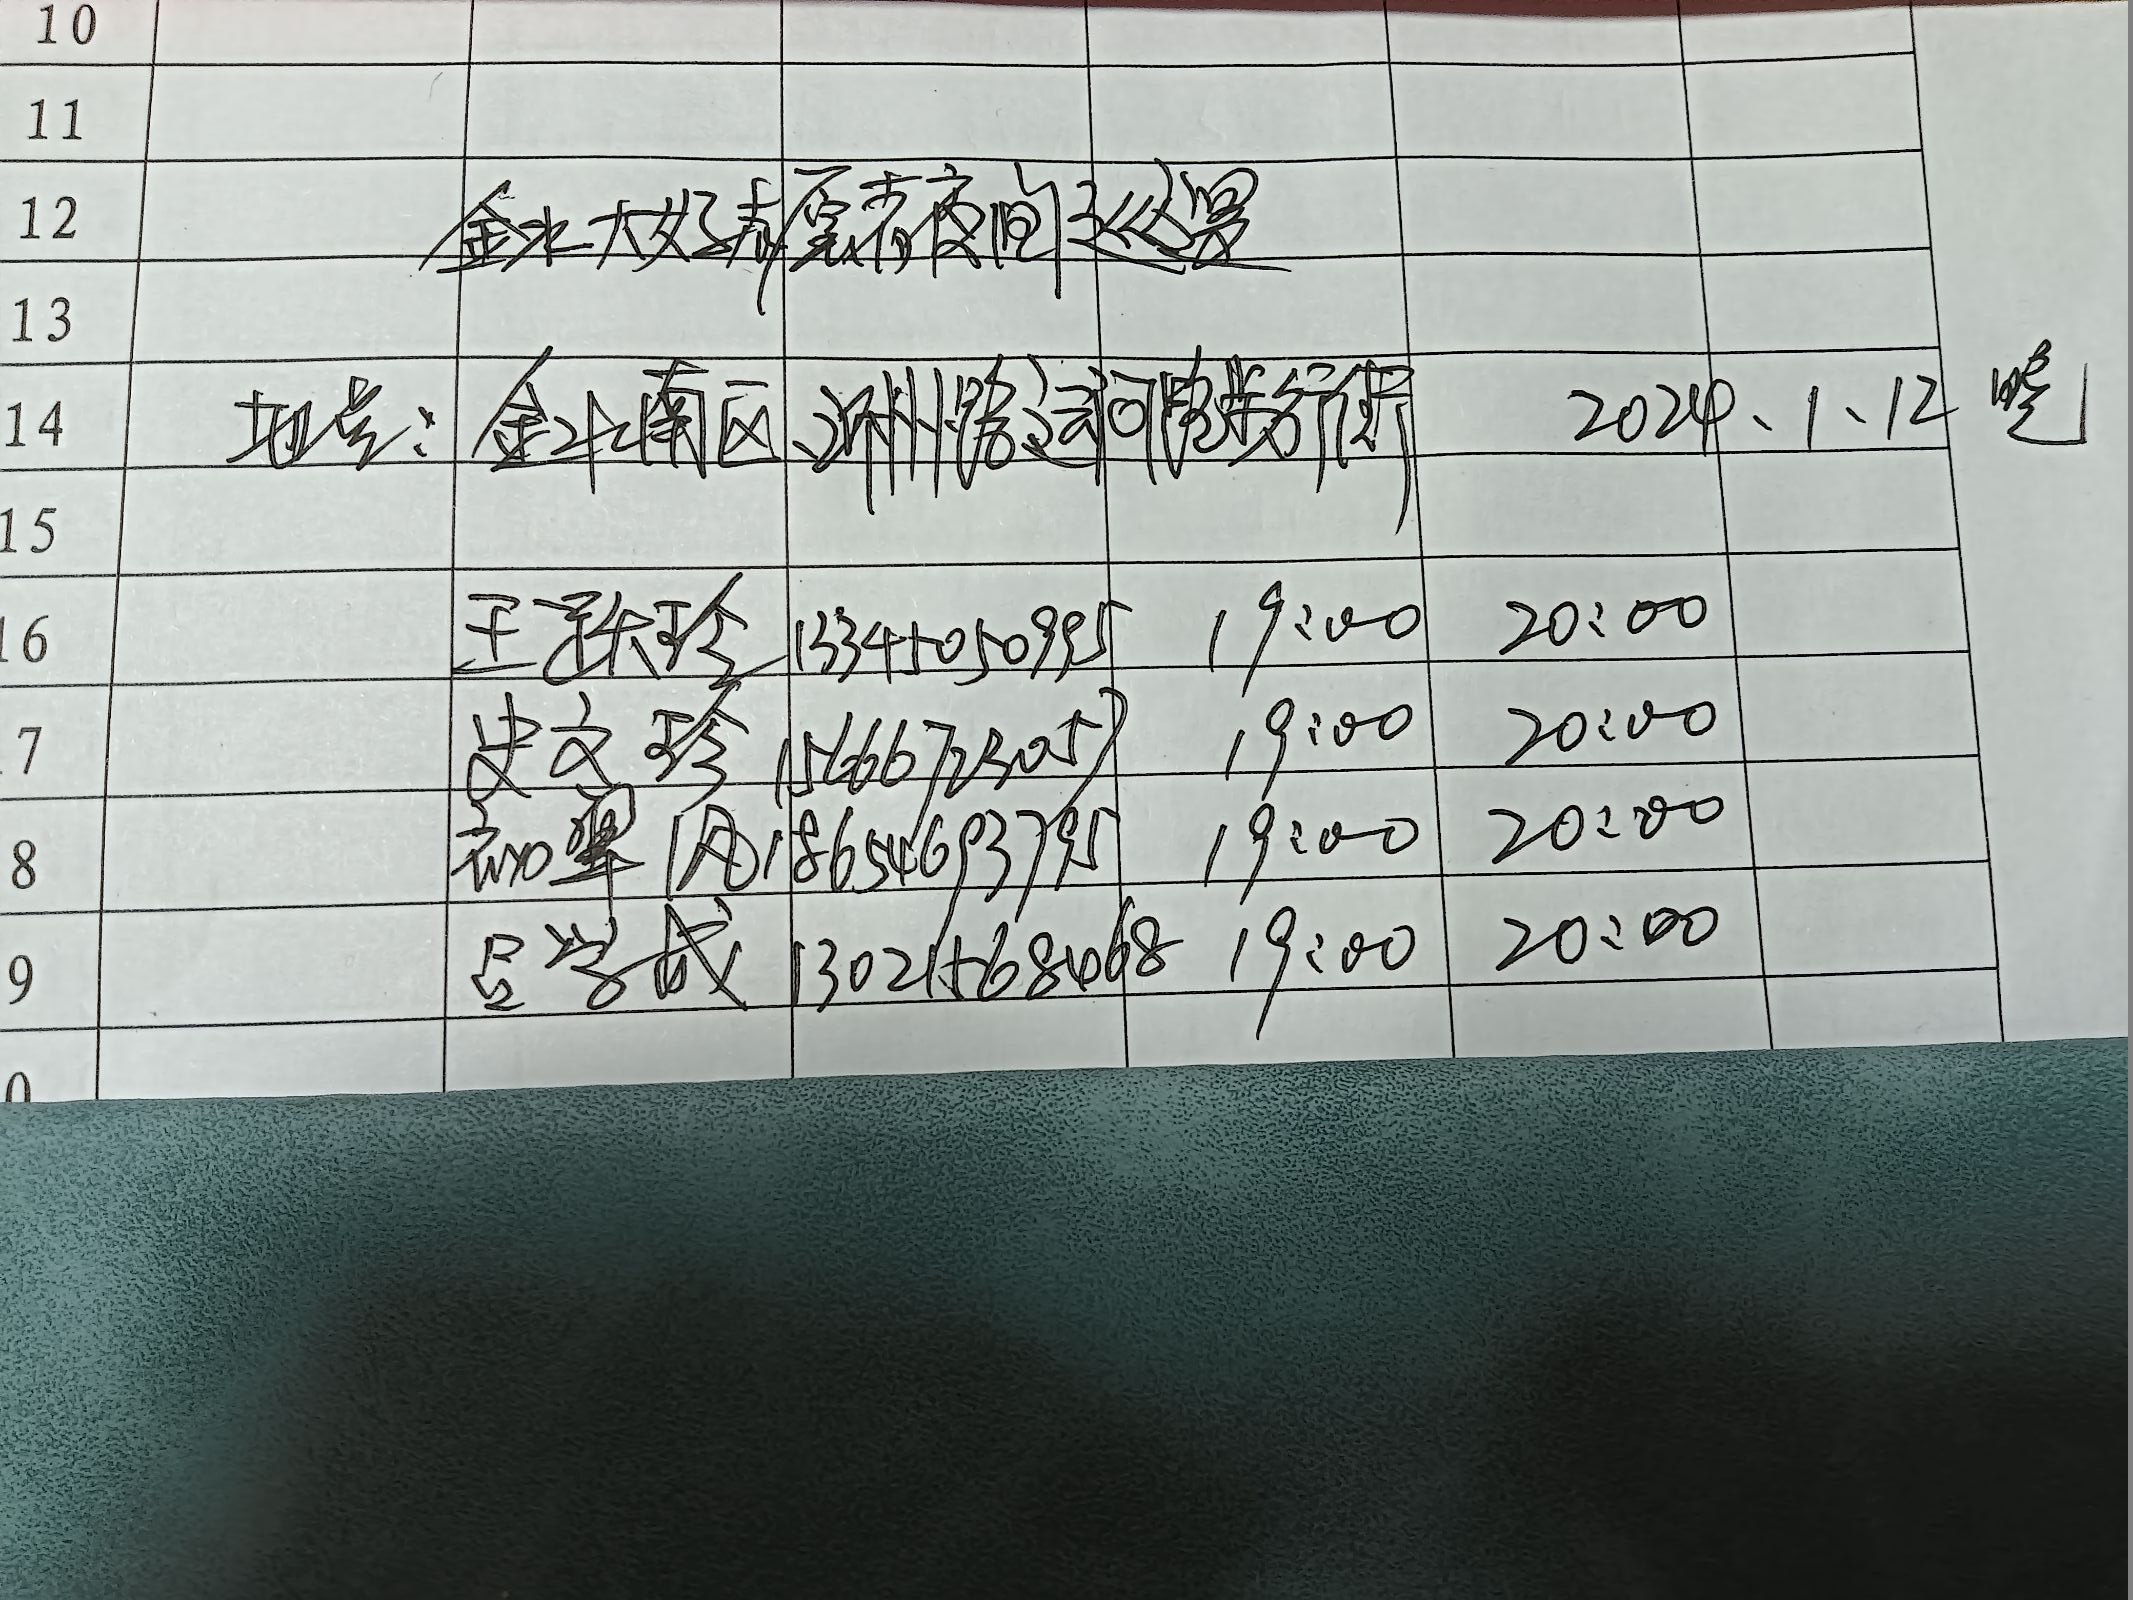 10
11
12 金水大好志愿者夜间巡逻
13
14 地点：金水南区、沂州路运河 步行街 2024、1、12 晚
15
16 王 珍 13345050995 19:00 20:00
7 史文珍 15666723057 19:00 20:00
8 18654693795 19:00 20:00
9 吕学成 13021568468 19:00 20:00
0